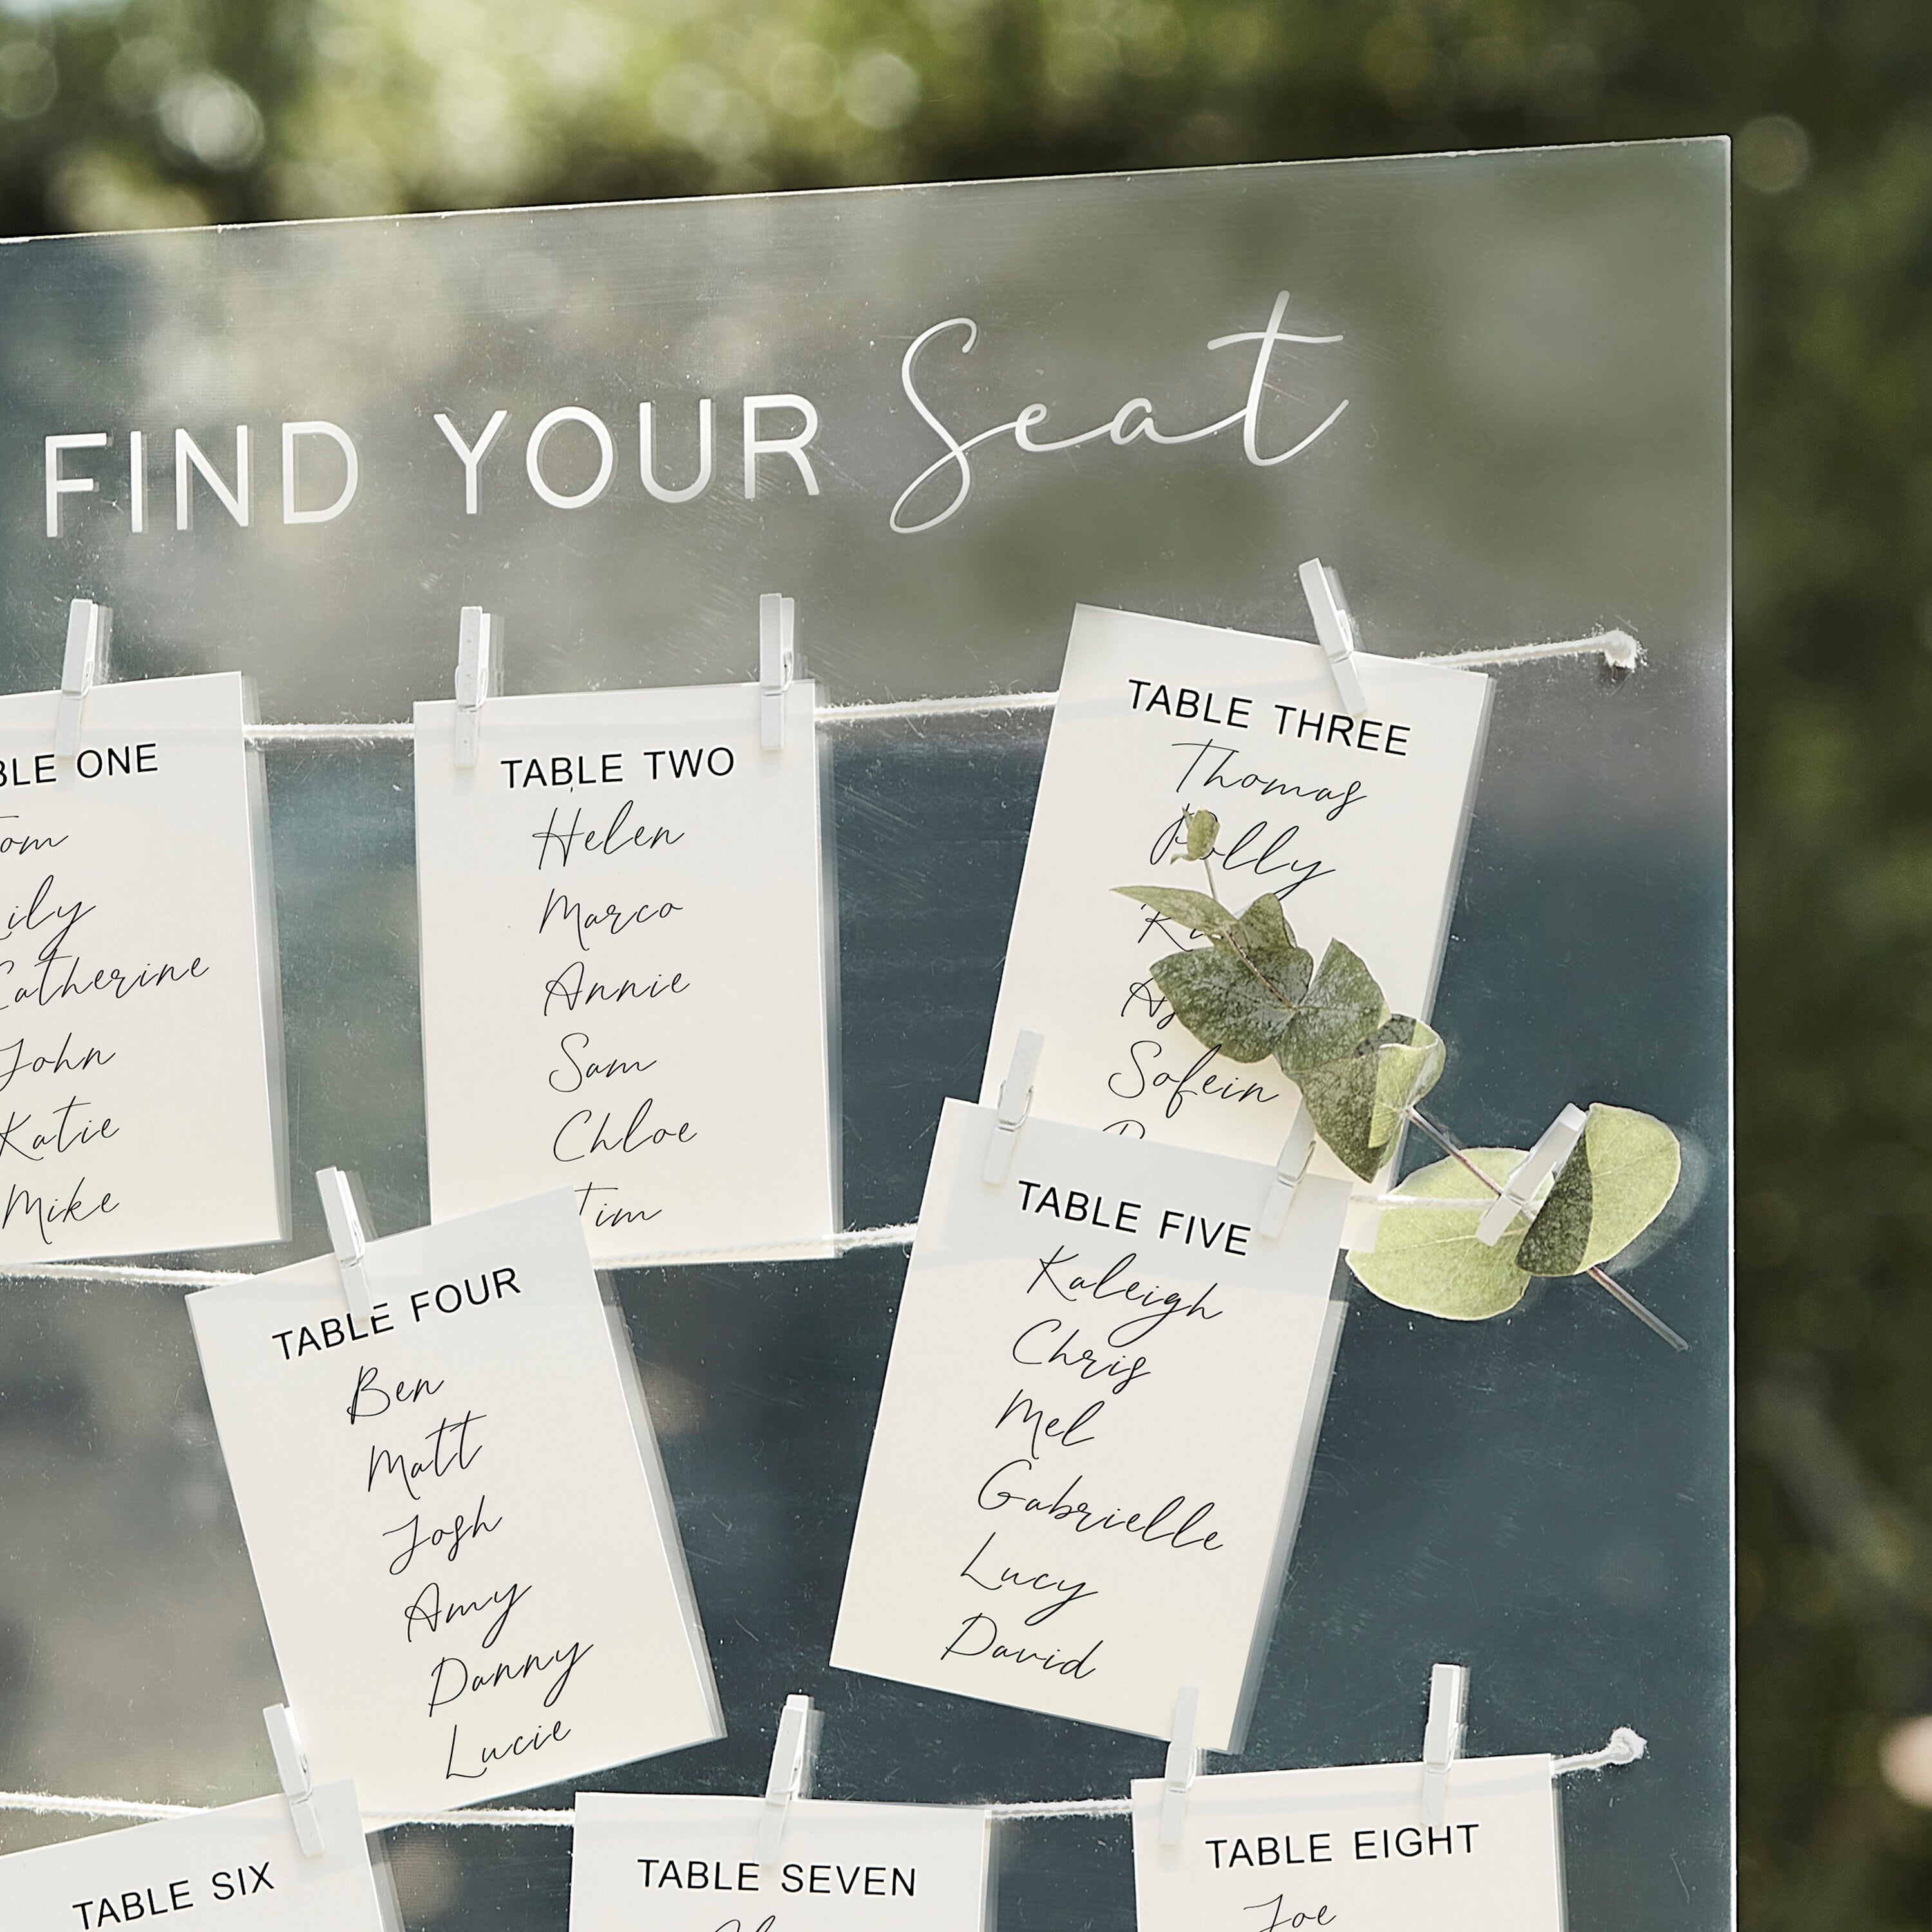 FIND YOUR Seat
BLE ONE
om
ily
Catherine
John
Katie
Mike
TABLE TWO
Helen
Marco
Annie
Sam
Chloe
Tim
TABLE THREE
Thomas
Polly
Sofein
TABLE FOUR
Ben
Matt
Josh
Amy
Danny
Lucie
TABLE FIVE
Kaleigh
Chris
Mel
Gabrielle
Lucy
David
TABLE SIX
TABLE SEVEN
TABLE EIGHT
Joe